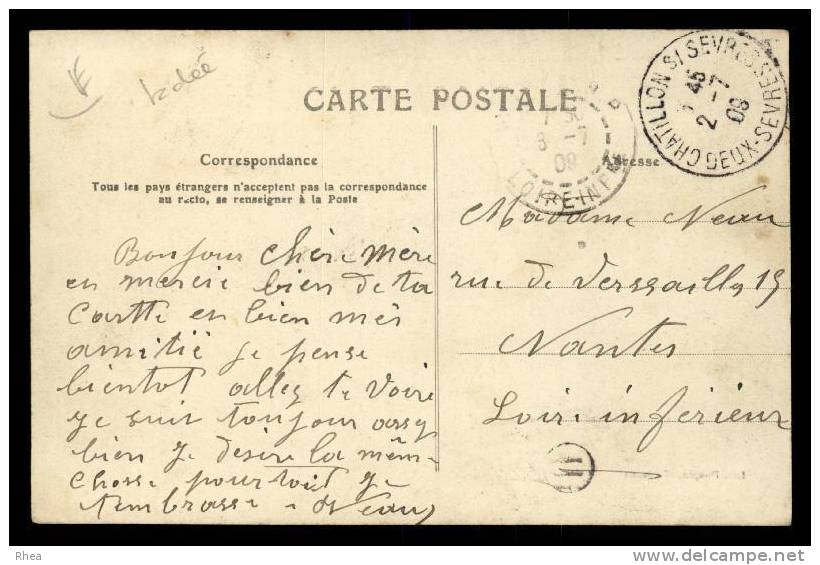 CARTE POSTALE
Correspondance
Tous les pays étrangers n'acceptent pas la correspondance
au recto, se renseigner à la Poste
Adresse
CHATILLON S/ SEVRE DEUX-SEVRES
45
2 -7
09
8 -7
09
LOIRE-INFRE
Bonjour chère mère
en mercie bien de ta
Cartte en bien mes
amitié je pense
bientot allez te voire
je suit toujour
bien je desire la mêm
chosse pour toit je
t'embrasse Neau
Madame Neau
rue de Verssailles 15
Nantes
Loire inférieur
Rhea
www.delcampe.net